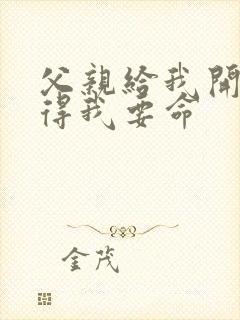 父親給我開
得我要命
金茂